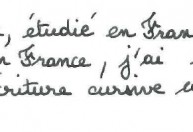 , étudié en Fran
France, j'ai
criture cursive